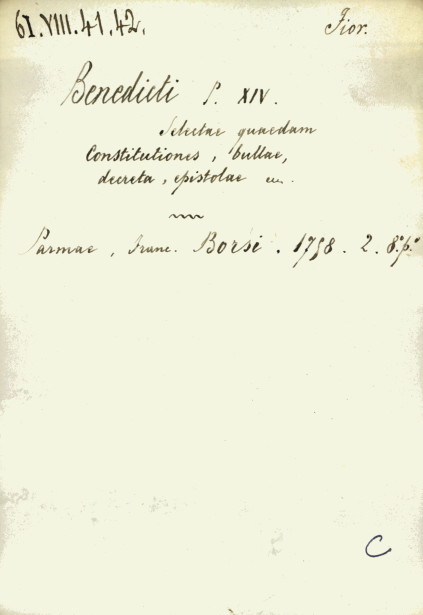 61.VIII.41.42. Fior.
Benedicti P. XIV.
Selectae quaedam
Constitutiones, bullae,
decreta, epistolae
Parmae, Franc. Borsi. 1758. 2. 8.° p.°
C